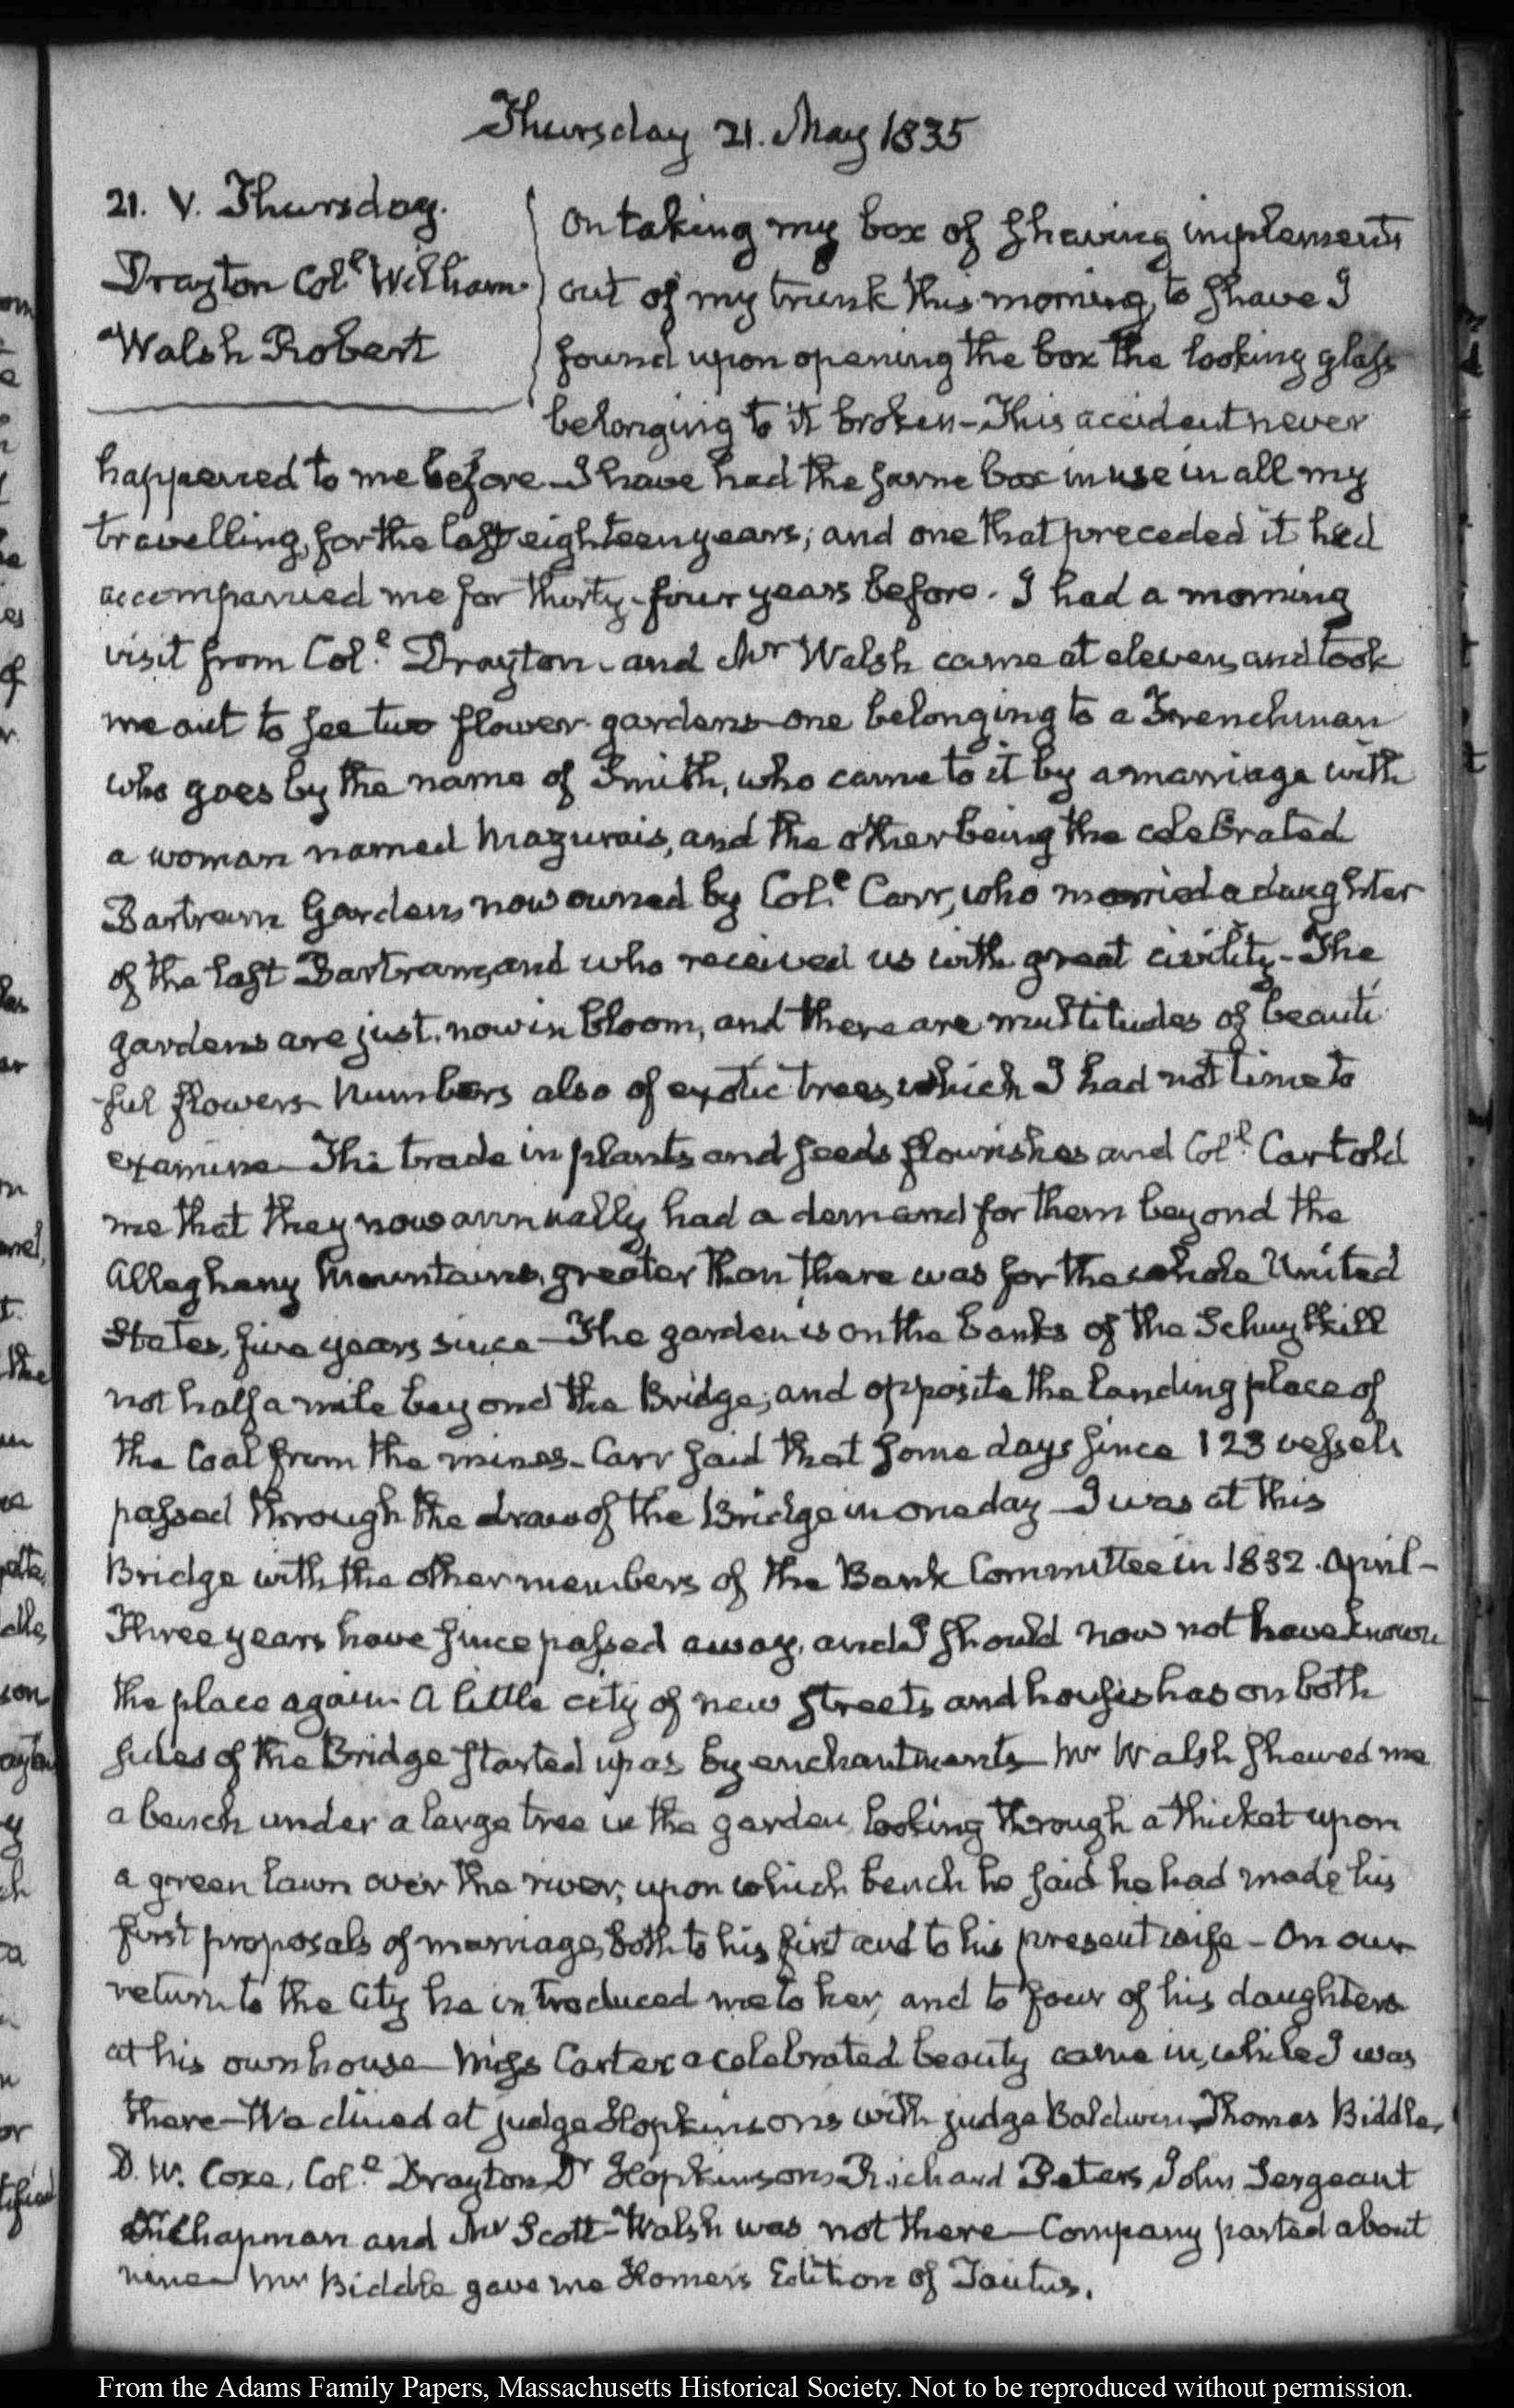 Thursday 21. May 1835
21. V. Thursday.
Drayton Col.l William
Walsh Robert
On taking my box of shaving implements
out of my trunk this morning, to shave I
found upon opening the box the looking glass
belonging to it broken - This accident never
happened to me before - I have had the same box in use in all my
travelling, for the last eighteen years; and one that preceded it had
accompanied me for thirty-four years before. I had a morning
visit from Col.l Drayton - and Mr Walsh came at eleven, and took
me out to see two flower gardens - one belonging to a Frenchman
who goes by the name of Smith, who came to it by a marriage with
a woman named Mazurais, and the other being the celebrated
Bartram Gardens now owned by Col.l Carr, who married a daughter
of the last Bartram, and who received us with great civility - The
gardens are just now in bloom, and there are multitudes of beauti-
ful flowers - Numbers also of exotic trees, which I had not time to
examine - The trade in plants and seeds flourishes and Col.l Carr told
me that they now annually had a demand for them beyond the
Alleghany Mountains, greater than there was for the whole United
States, five years since - The garden is on the banks of the Schuylkill
not half a mile beyond the Bridge; and opposite the landing place of
the Coal from the mines - Carr said that some days since 123 vessels
passed through the draw of the Bridge in one day - I was at this
Bridge with the other members of the Bank Committee in 1832. April -
Three years have since passed away, and I should now not have known
the place again - A little city of new streets and houses has on both
sides of the Bridge started up as by enchantment - Mr Walsh shewed me
a bench under a large tree in the garden, looking through a thicket upon
a green lawn over the river, upon which bench he said he had made his
first proposals of marriage, both to his first and to his present wife - On our
return to the City he introduced me to her, and to four of his daughters
at his own house - Miss Carter a celebrated beauty came in, while I was
there - We dined at judge Hopkinson's with judge Baldwin, Thomas Biddle,
D. W. Coxe, Col.l Drayton, Dr Hopkinson, Richard Peters, John Sergeant
Chapman and Mr Scott - Walsh was not there - Company parted about
nine - Mr Biddle gave me Homer's Edition of Tacitus.
From the Adams Family Papers, Massachusetts Historical Society. Not to be reproduced without permission.